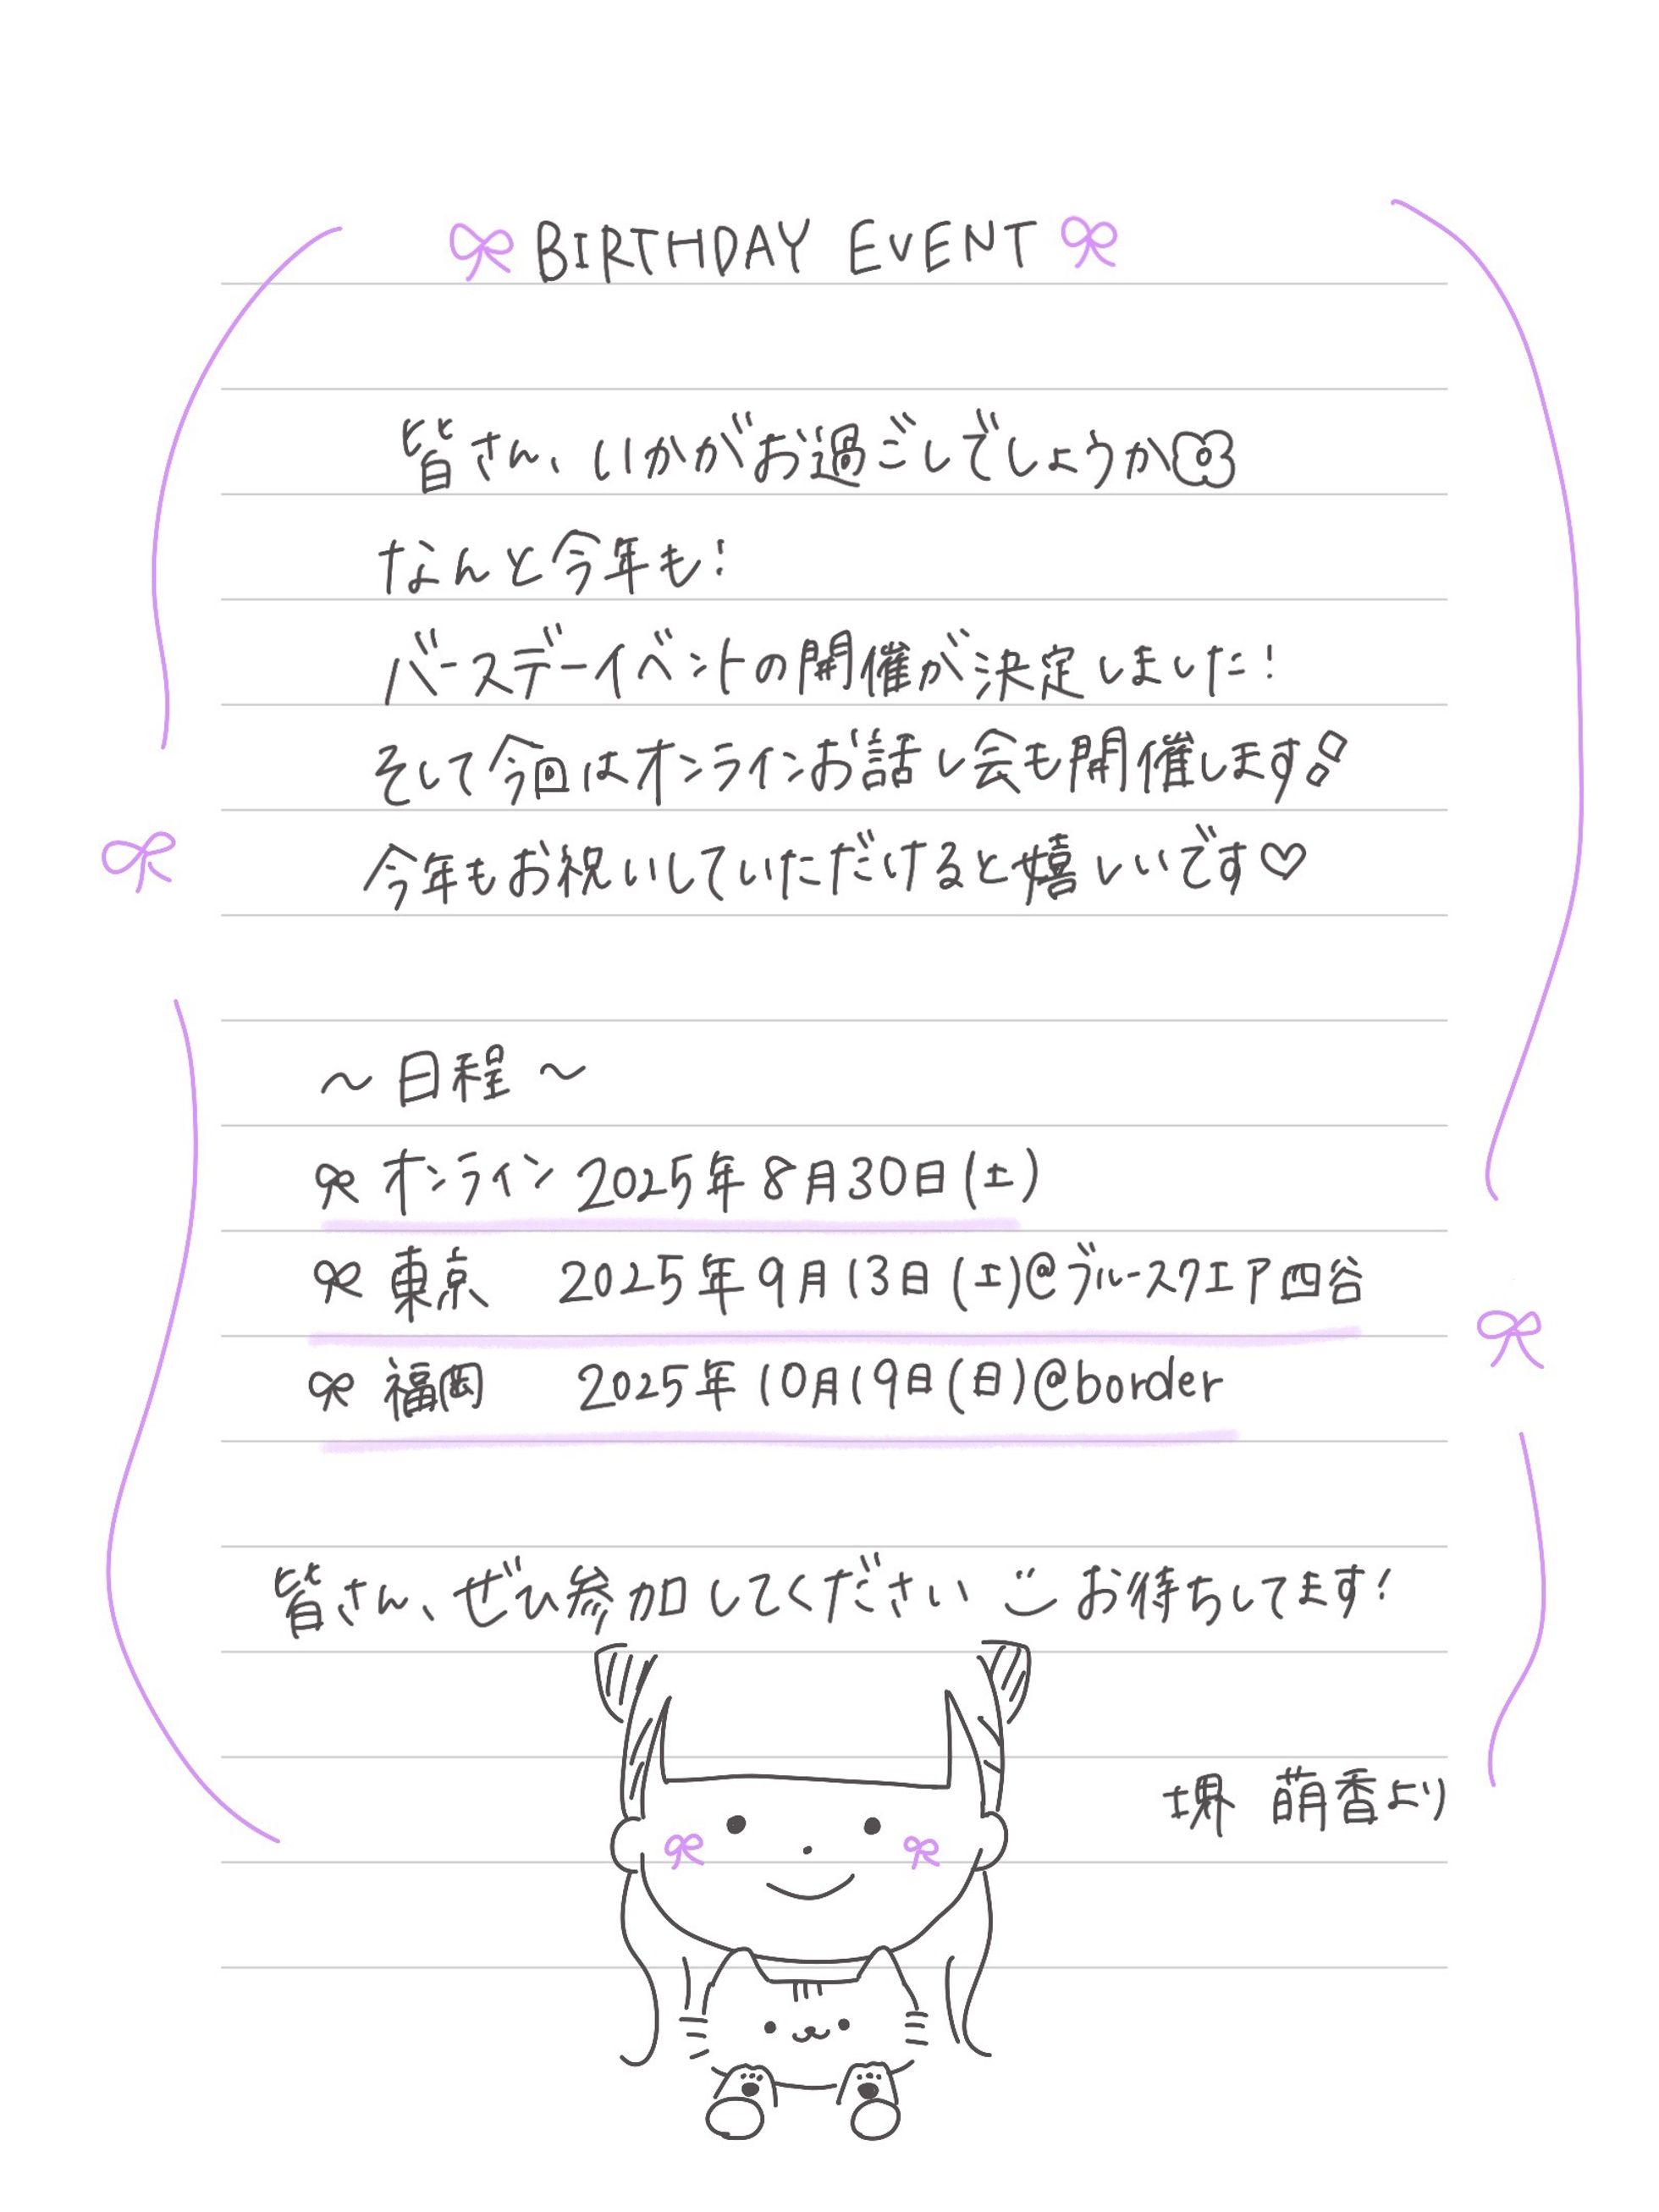 BIRTHDAY EVENT
皆さん、いかがお過ごしでしょうか
なんと今年も!
バースデーイベントの開催が決定しました!
そして今回はオンラインお話し会も開催します!
今年もお祝いしていただけると嬉しいです♡
〜日程〜
オンライン 2025年8月30日(土)
東京 2025年9月13日(土)@ブルースクエア四谷
福岡 2025年10月19日(日)@border
皆さん、ぜひ参加してください お待ちしてます!
堺 萌香より